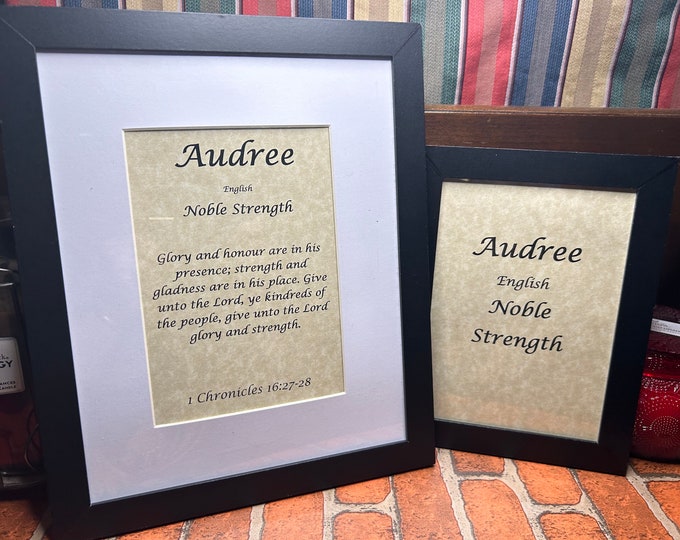 Audree
English
Noble Strength
Glory and honour are in his
presence; strength and
gladness are in his place. Give
unto the Lord, ye kindreds of
the people, give unto the Lord
glory and strength.
1 Chronicles 16:27-28
Audree
English
Noble
Strength